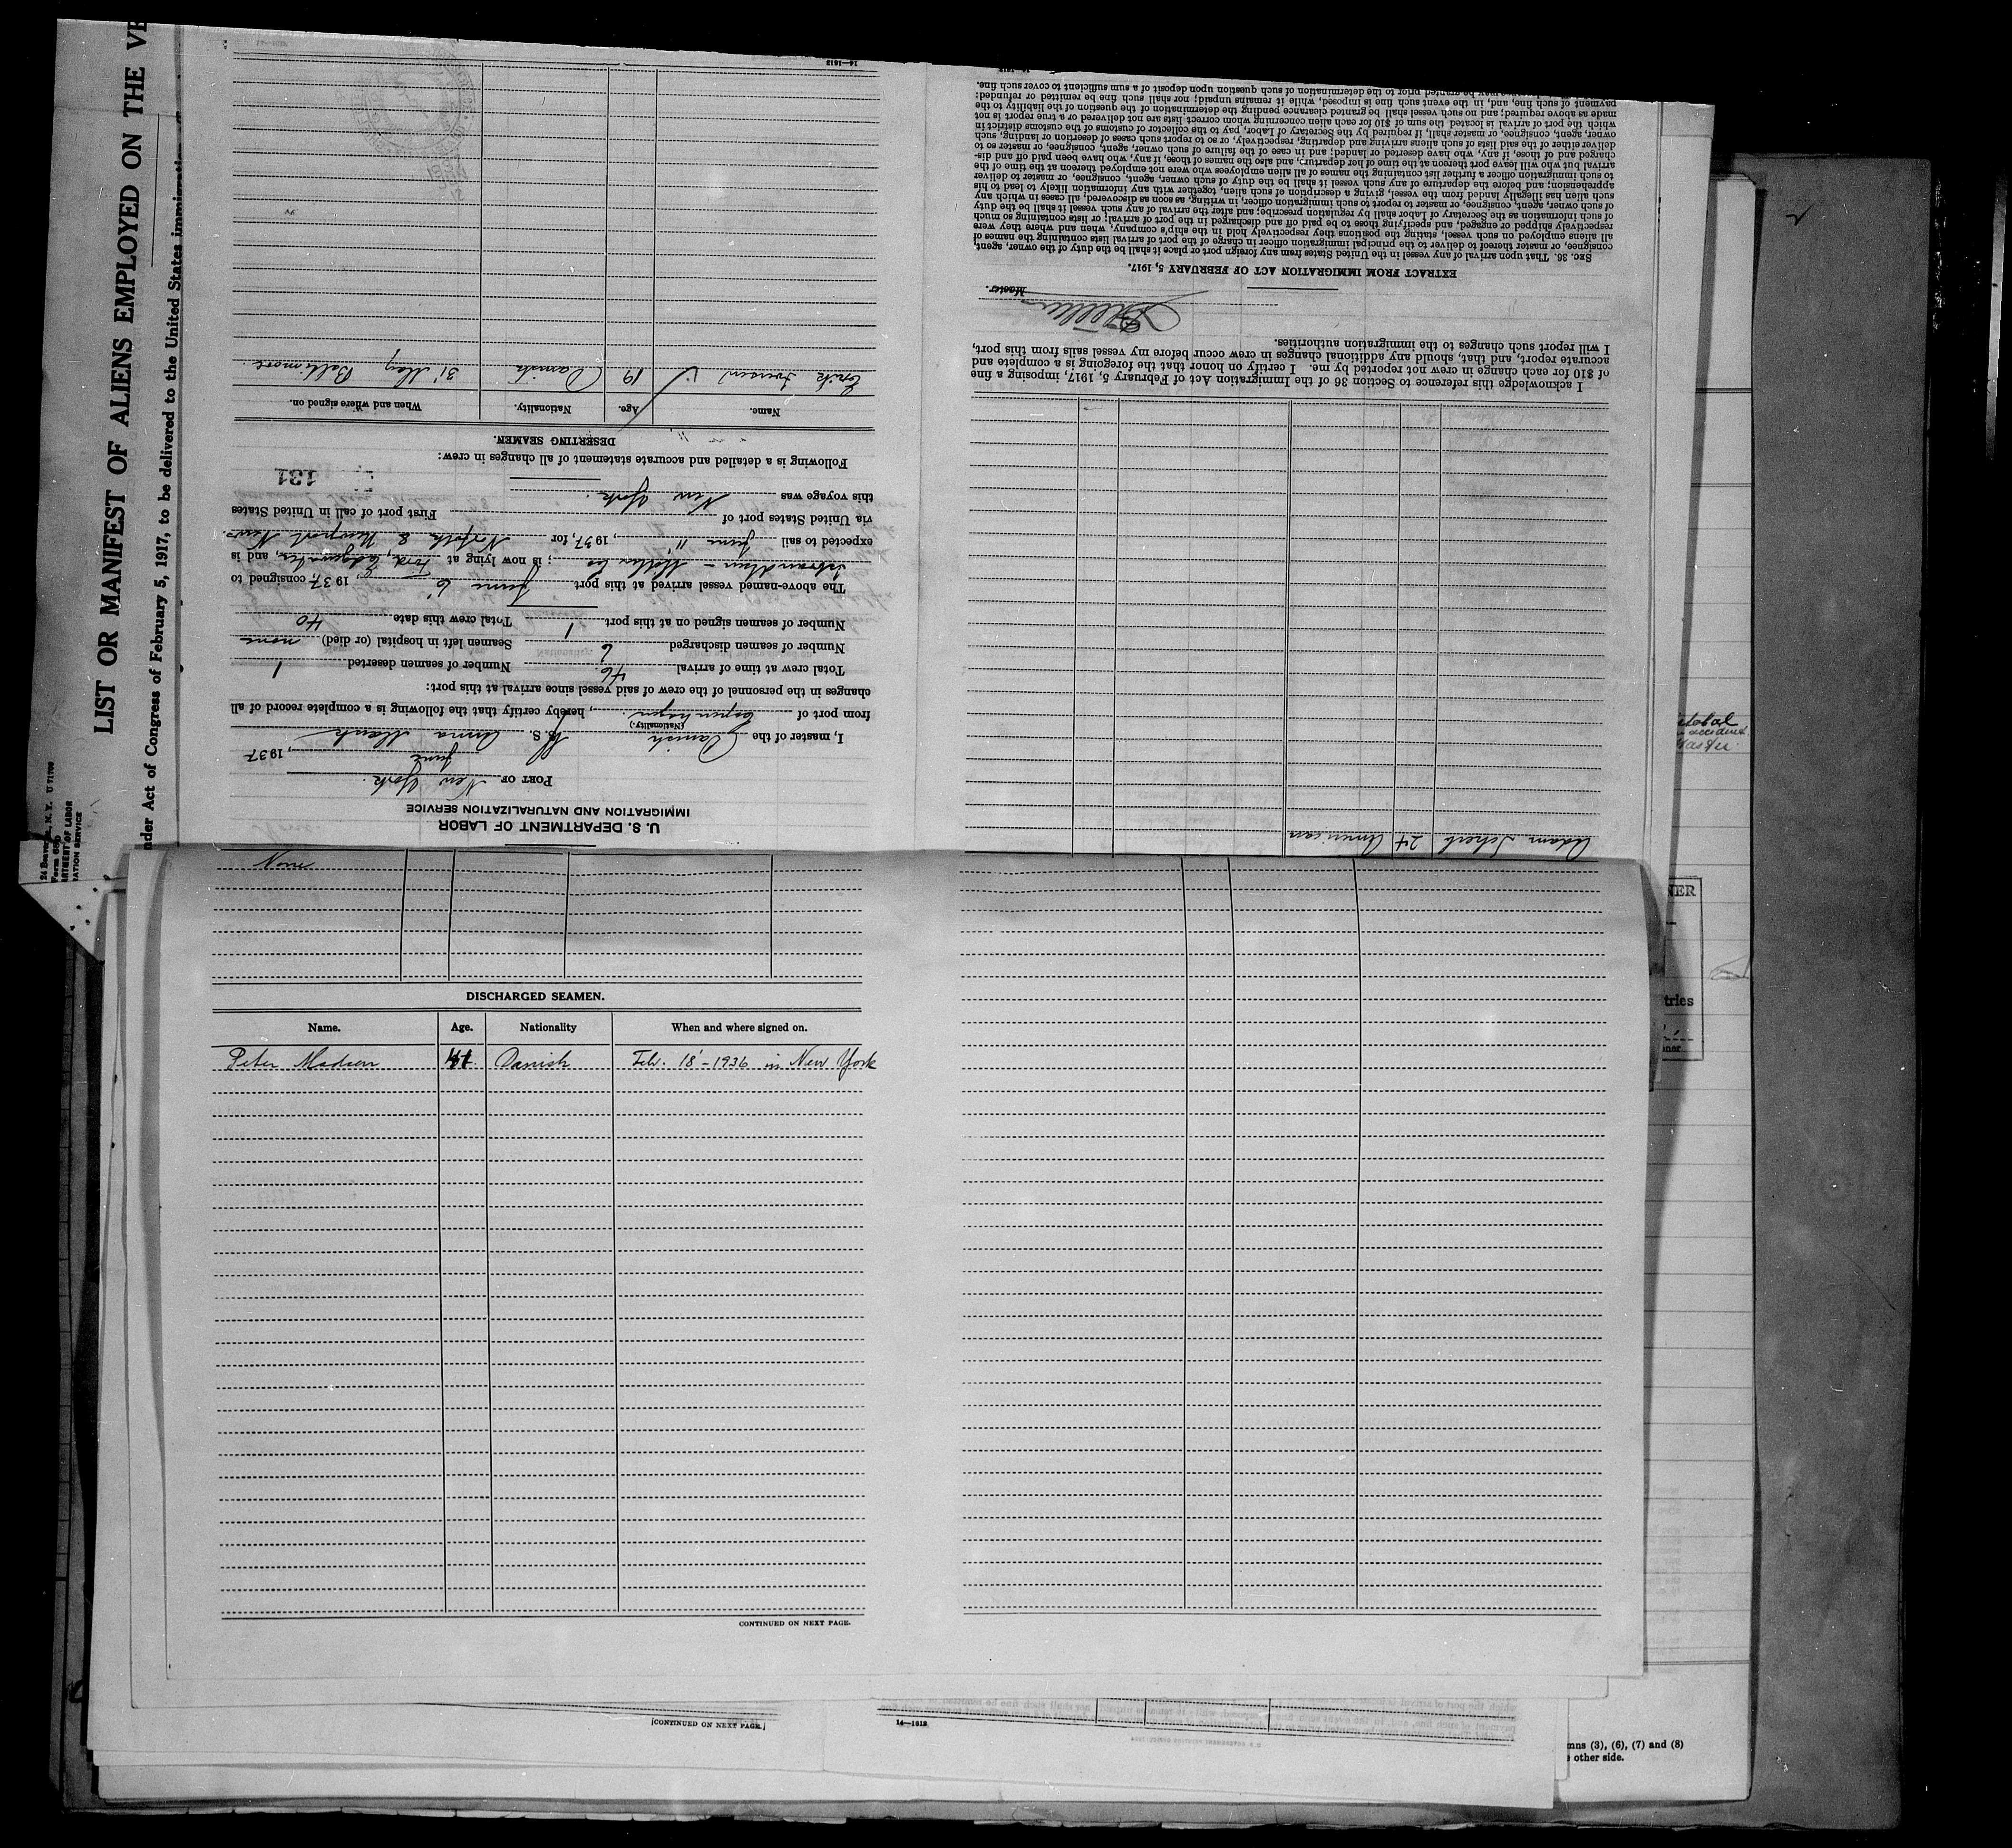 LIST OR MANIFEST OF ALIENS EMPLOYED ON THE VE
nder Act of Congress of February 5, 1917, to be delivered to the United States immigration
U. S. DEPARTMENT OF LABOR
IMMIGRATION AND NATURALIZATION SERVICE
PORT OF New York.
June, 1937
I, master of the Danish S. S. Anna Maersk
(Nationality.)
from port of Copenhagen, hereby certify that the following is a complete record of all
changes in the personnel of the crew of said vessel since arrival at this port:
Total crew at time of arrival 46 Number of seamen deserted 1
Number of seamen discharged 6 Seamen left in hospital (or died) none
Number of seamen signed on at this port 1 Total crew this date 40
The above-named vessel arrived at this port June 6', 1937, consigned to
Isbrandtsen - Moller Co; is now lying at Foot, and is
expected to sail June 11", 1937, for Norfolk & Newport News.
via United States port of First port of call in United States
this voyage was New York.
131
Following is a detailed and accurate statement of all changes in crew:
DESERTING SEAMEN.
Name. Age. Nationality. When and where signed on.
Erik Iversen 19 Danish 31' May Baltimore.
16—1612
Adam 24 American
I acknowledge this reference to Section 36 of the Immigration Act of February 5, 1917, imposing a fine
of $10 for each change in crew not reported by me. I certify on honor that the foregoing is a complete and
accurate report, and that, should any additional changes in crew occur before my vessel sails from this port,
I will report such changes to the immigration authorities.
Master.
EXTRACT FROM IMMIGRATION ACT OF FEBRUARY 5, 1917.
SEC. 36. That upon arrival of any vessel in the United States from any foreign port or place it shall be the duty of the owner, agent,
consignee, or master thereof to deliver to the principal immigration officer in charge of the port of arrival lists containing the names of
all aliens employed on such vessel, stating the positions they respectively hold in the ship's company, when and where they were
respectively shipped or engaged, and specifying those to be paid off and discharged in the port of arrival; or lists containing so much
of such information as the Secretary of Labor shall by regulation prescribe; and after the arrival of any such vessel it shall be the duty
of such owner, agent, consignee, or master to report to such immigration officer, in writing, as soon as discovered, all cases in which any
such alien has illegally landed from the vessel, giving a description of such alien, together with any information likely to lead to his
apprehension; and before the departure of any such vessel it shall be the duty of such owner, agent, consignee, or master to deliver
to such immigration officer a further list containing the names of all alien employees who were not employed thereon at the time of the
arrival but who will leave port thereon at the time of her departure, and also the names of those, if any, who have been paid off and dis-
charged and of those, if any, who have deserted or landed; and in case of the failure of such owner, agent, consignee, or master so to
deliver either of the said lists of such aliens arriving and departing, respectively, or so to report such cases of desertion or landing, such
owner, agent, consignee, or master shall, if required by the Secretary of Labor, pay to the collector of customs of the customs district in
which the port of arrival is located the sum of $10 for each alien concerning whom correct lists are not delivered or a true report is not
made as above required; and no such vessel shall be granted clearance pending the determination of the question of the liability to the
payment of such fine, and, in the event such fine is imposed, while it remains unpaid; nor shall such fine be remitted or refunded:
may be granted prior to the determination of such question upon deposit of a sum sufficient to cover such fine.
None
DISCHARGED SEAMEN.
Name. Age. Nationality When and where signed on.
Peter Madsen Danish Feb. 18'-1936 in New York
CONTINUED ON NEXT PAGE.
[CONTINUED ON NEXT PAGE.]
16—1612
mns (3), (6), (7) and (8)
other side.